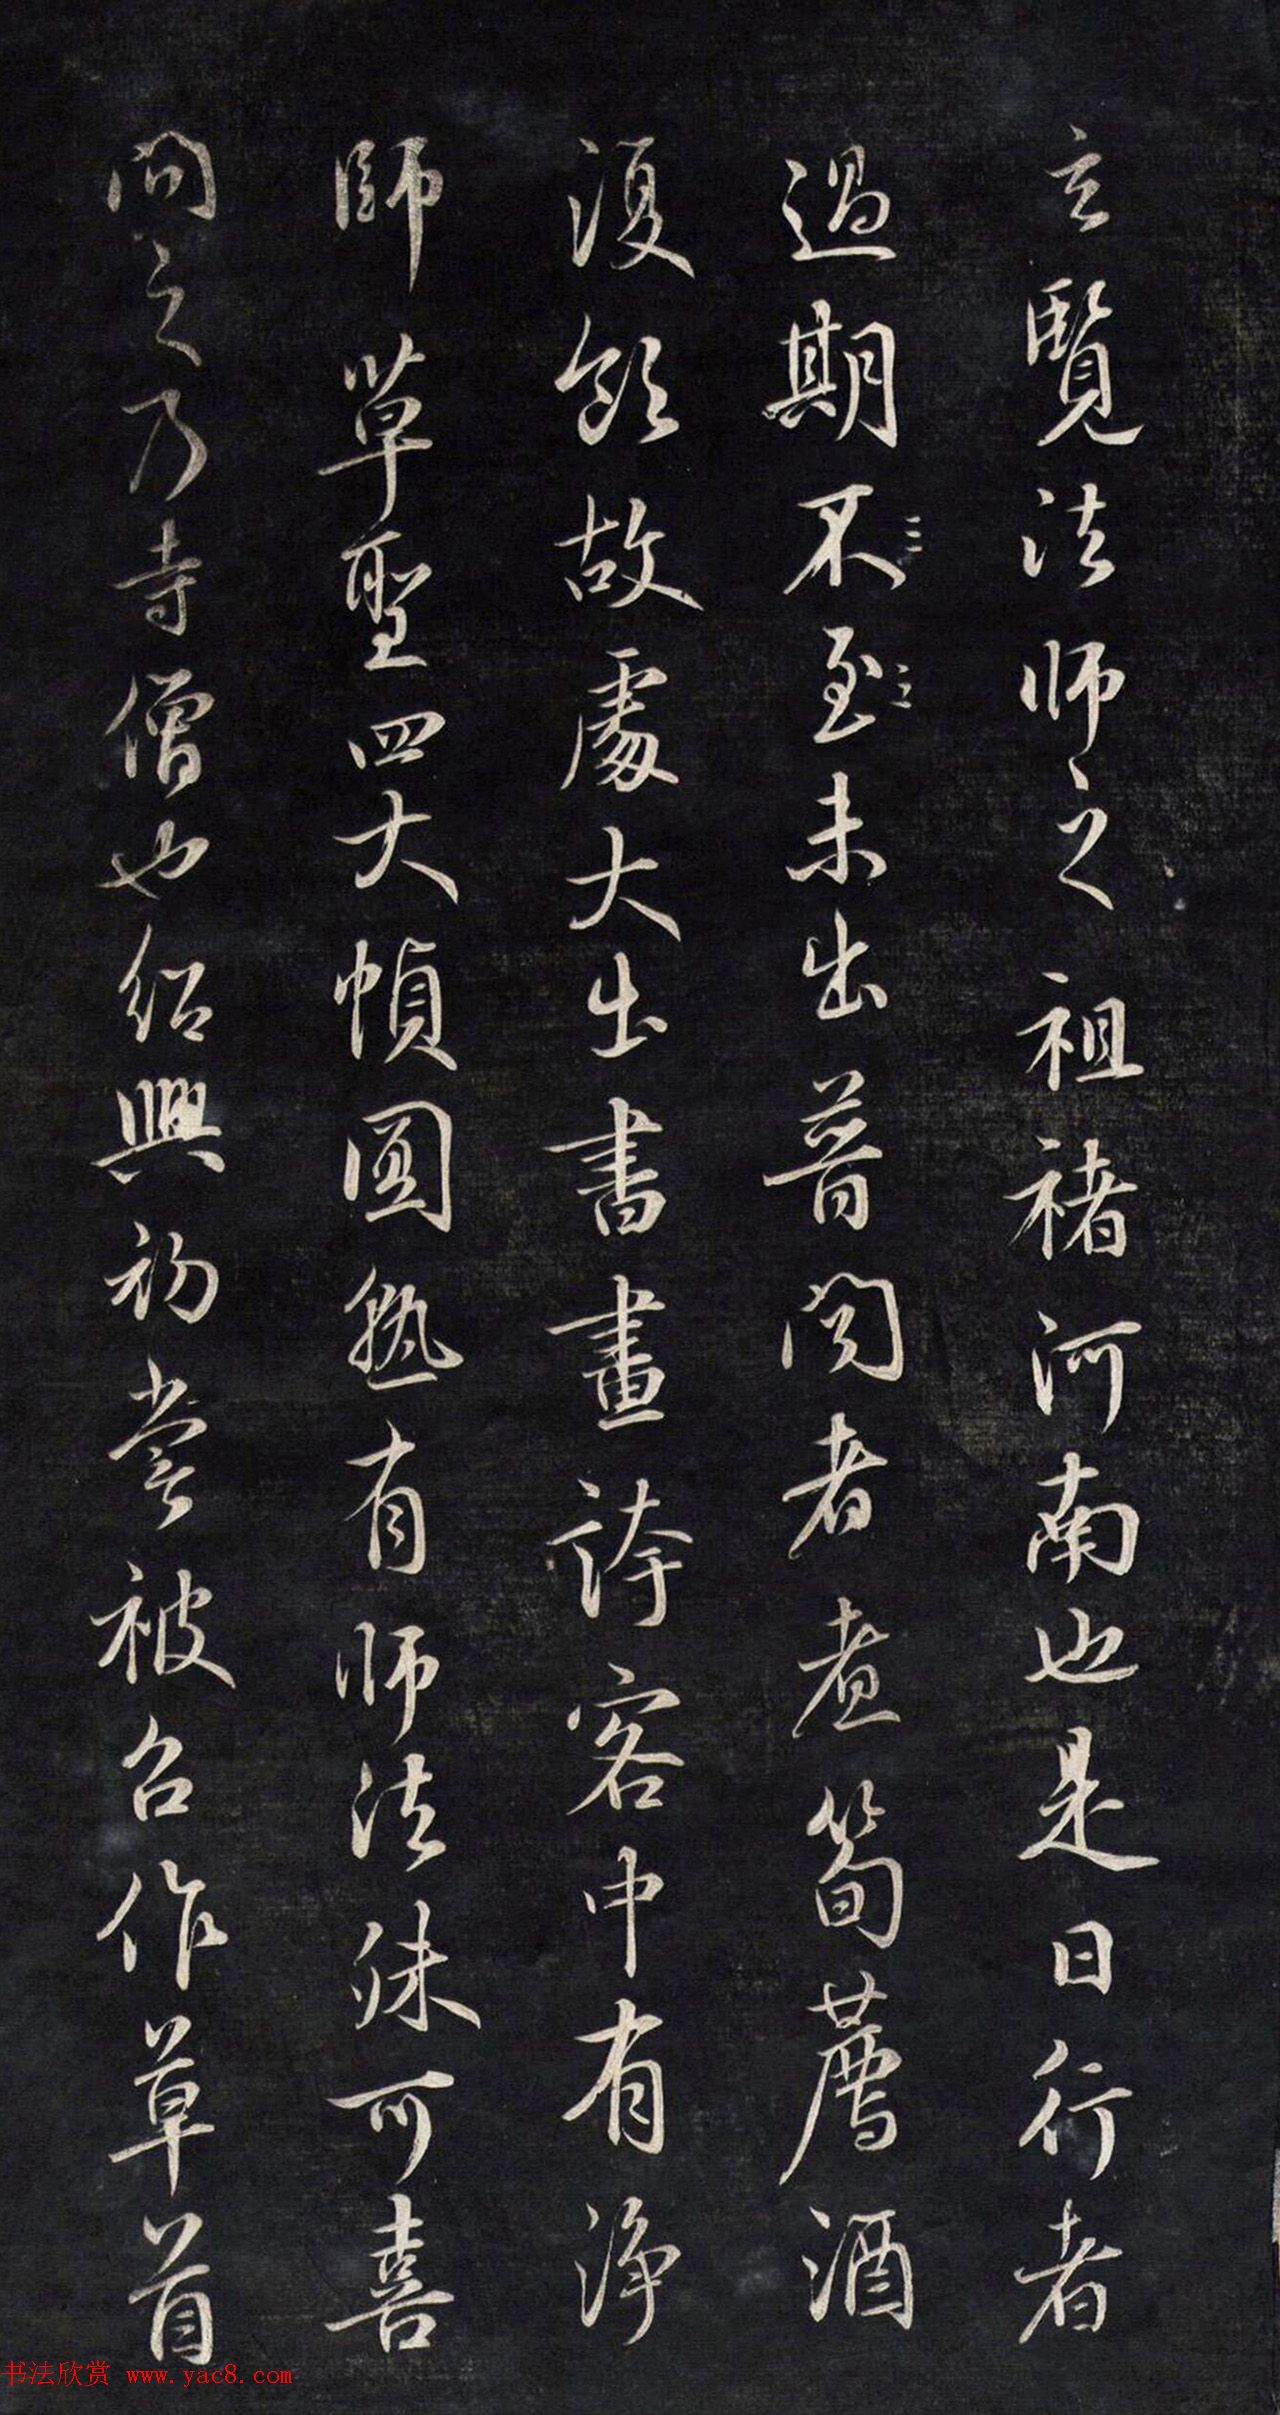 玄覽法師之祖褚河南也是日行者
過期不〻至〻未出普閱者煮筍薦酒
復飲故處大出書畫誇客中有淨
師草聖四大幀圓熟有師法殊可喜
問之乃寺僧也紹興初嘗被召作草首
书法欣赏 www.yac8.com